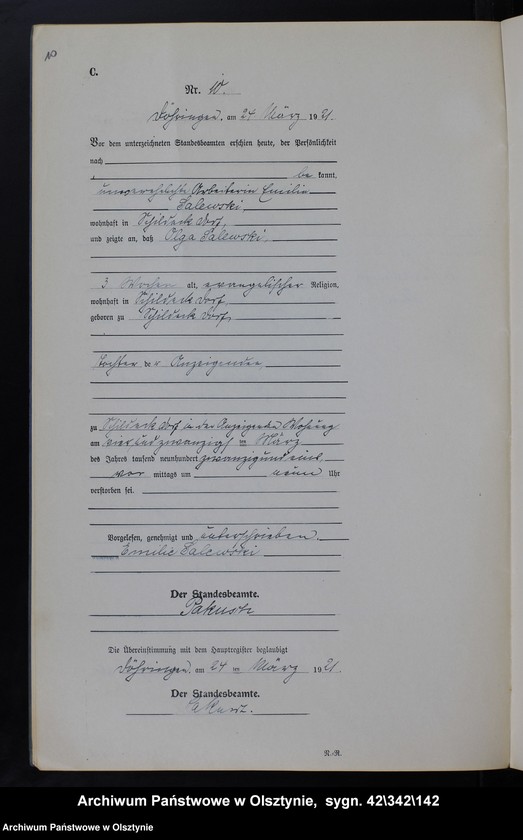 10
C.
Nr. 10.
Döhringen. am 24 März 1921.
Vor dem unterzeichneten Standesbeamten erschien heute, der Persönlichkeit
nach
be kannt,
unverehelichte Arbeiterin Emilie
Salewski,
wohnhaft in Schildeck Dorf,
und zeigte an, daß Olga Salewski,
3 Wochen alt, evangelischer Religion,
wohnhaft in Schildeck Dorf,
geboren zu Schildeck Dorf,
Tochter der Anzeigenden,
zu Schildeck Dorf in der Anzeigende Wohnung
am vierundzwanzigsten März
des Jahres tausend neunhundert zwanzigundeins
vor mittags um neun Uhr
verstorben sei.
Vorgelesen, genehmigt und unterschrieben.
Emilie Salewski
Der Standesbeamte.
Die Übereinstimmung mit dem Hauptregister beglaubigt
Döhringen. am 24 ten März 1921.
Der Standesbeamte.
R.-R.
Archiwum Państwowe w Olsztynie, sygn. 42\342\142
Archiwum Państwowe w Olsztynie